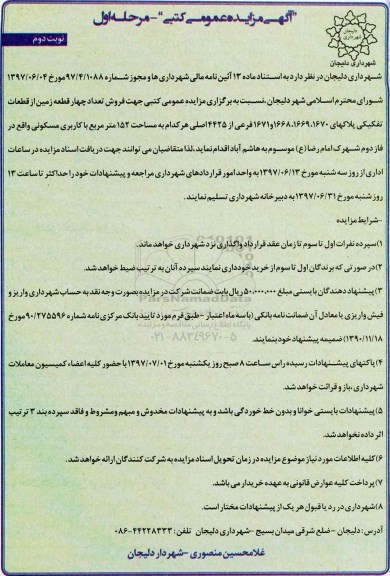 "آگهی مزایده عمومی کتبی" - مرحله اول
نوبت دوم
شهرداری دلیجان
شهرداری دلیجان در نظر دارد به استناد ماده ۱۳ آئین نامه مالی شهرداری ها و مجوز شماره ۹۷/۴/۱۰۸۸ مورخ ۱۳۹۷/۰۶/۰۴
شورای محترم اسلامی شهر دلیجان، نسبت به برگزاری مزایده عمومی کتبی جهت فروش تعداد چهار قطعه زمین از قطعات
تفکیکی پلاکهای ۱۶۶۸،۱۶۶۹،۱۶۷۰ و ۱۶۷۱ فرعی از ۴۴۲۵ اصلی هر کدام به مساحت ۱۵۲ متر مربع با کاربری مسکونی واقع در
فاز دوم شهرک امام رضا (ع) موسوم به هاشم آباد اقدام نماید، لذا متقاضیان می توانند جهت دریافت اسناد مزایده در ساعات
اداری از روز سه شنبه مورخ ۱۳۹۷/۰۶/۱۳ به واحد امور قراردادهای شهرداری مراجعه و پیشنهادات خود را حداکثر تا ساعت ۱۳
روز شنبه مورخ ۱۳۹۷/۰۶/۳۱ به دبیرخانه شهرداری تسلیم نمایند.
-شرایط مزایده
۱) سپرده نفرات اول تا سوم تا زمان عقد قرارداد واگذاری نزد شهرداری خواهد ماند.
۲) در صورتی که برندگان اول تا سوم از خرید خودداری نمایند سپرده آنان به ترتیب ضبط خواهد شد.
۳) پیشنهاد دهندگان بایستی مبلغ ۵۰،۰۰۰،۰۰۰ ریال بابت ضمانت شرکت در مزایده بصورت وجه نقد به حساب شهرداری واریز و
فیش واریزی یا معادل آن ضمانت نامه بانکی (با سه ماه اعتبار - طبق فرم مورد تایید بانک مرکزی نامه شماره ۹۰/۲۷۵۵۹۶ مورخ
۱۳۹۰/۱۱/۱۸) ضمیمه پیشنهاد خود بنمایند.
۴) پاکتهای پیشنهادات رسیده راس ساعت ۸ صبح روز یکشنبه مورخ ۱۳۹۷/۰۷/۰۱ با حضور کلیه اعضاء کمیسیون معاملات
شهرداری، باز و قرائت خواهد شد.
۵) پیشنهادات بایستی خوانا و بدون خط خوردگی باشد و به پیشنهادات مخدوش و مبهم و مشروط و فاقد سپرده بند ۳ ترتیب
اثر داده نخواهد شد.
۶) کلیه اطلاعات مورد نیاز موضوع مزایده در زمان تحویل اسناد مزایده به شرکت کنندگان ارائه خواهد شد.
۷) پرداخت کلیه عوارض قانونی به عهده خریدار می باشد.
۸) شهرداری در رد یا قبول هر یک از پیشنهادات مختار است.
آدرس: دلیجان - ضلع شرقی میدان بسیج - شهرداری دلیجان تلفن: ۴۴۲۲۸۳۳۳-۰۸۶
غلامحسین منصوری - شهردار دلیجان
ParsNamadData
پایگاه اطلاع رسانی مناقصه و مزایده
۰۲۱-۸۸۳۴۹۶۷۰-۵